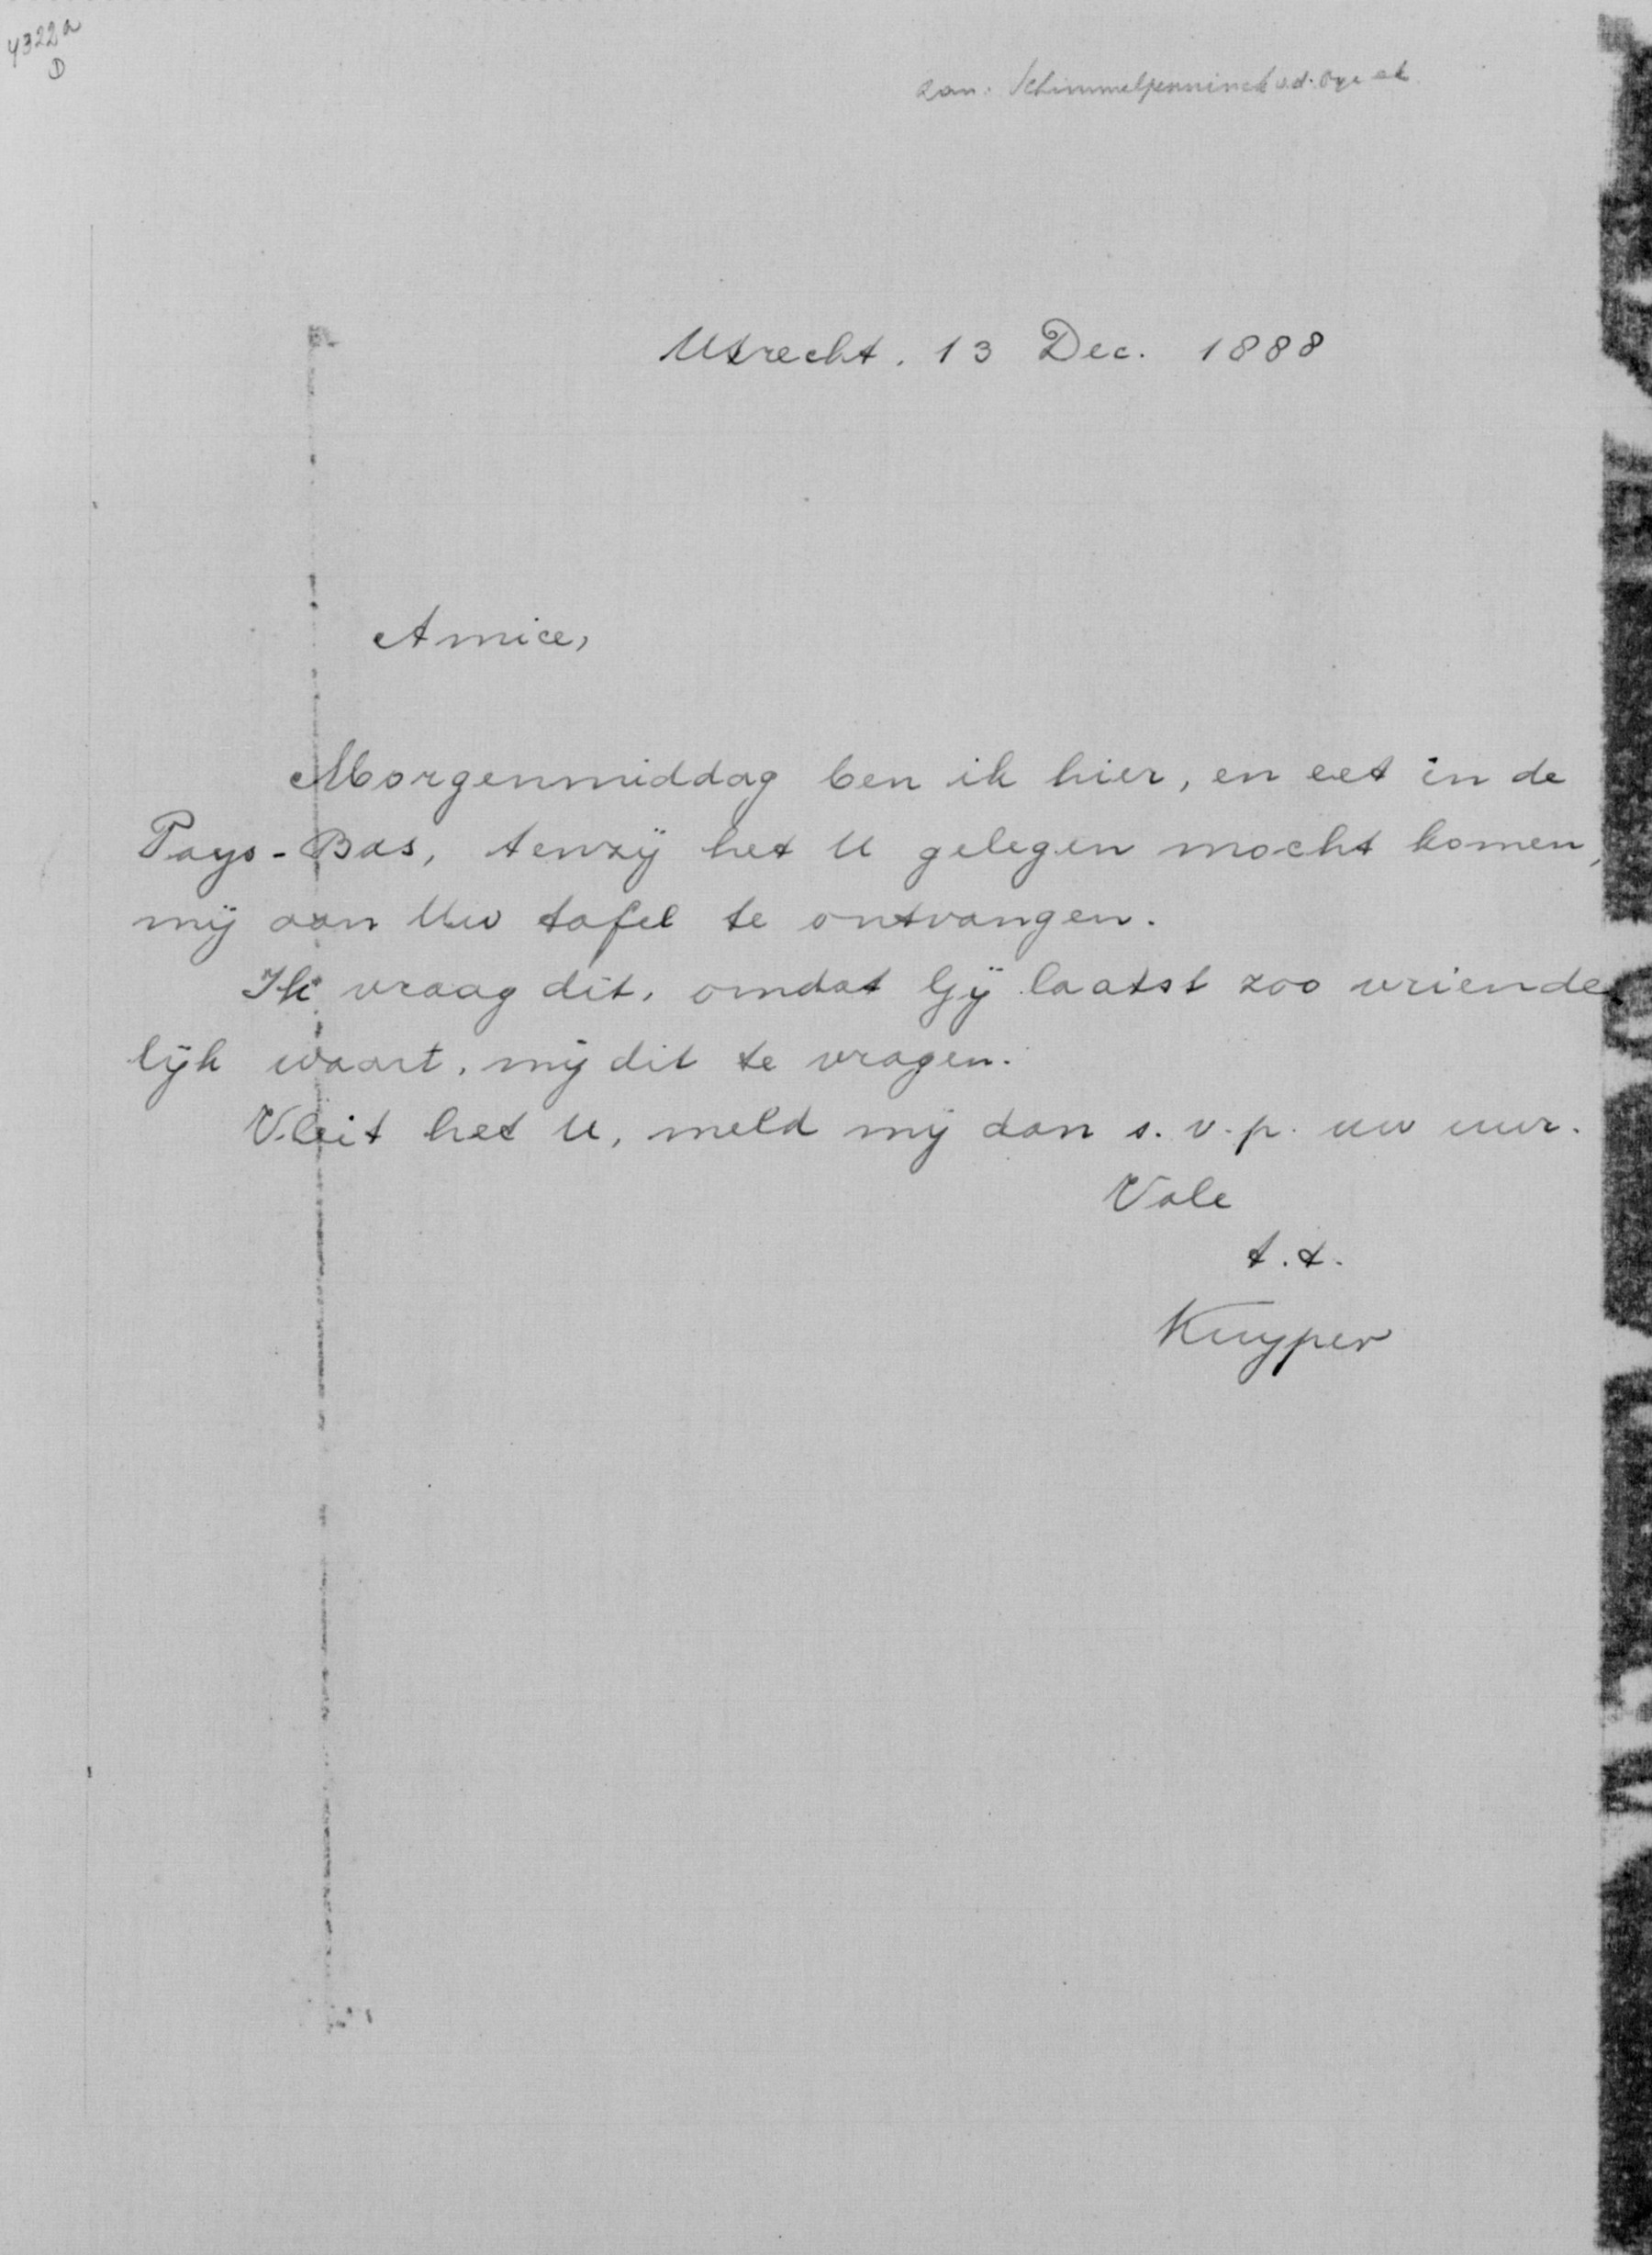 4322a
D
aan: Schimmelpenninck v.d. Oye
Utrecht, 13 Dec. 1888
Amice,
Morgenmiddag ben ik hier, en eet in de
Pays-Bas, tenzij het U gelegen mocht komen,
mij aan Uw tafel te ontvangen.
Ik vraag dit, omdat Gij laatst zoo vriende-
lijk waart, mij dit te vragen.
Vleit het U, meld mij dan s.v.p. uw uur.
Vale
t.t.
Kuyper